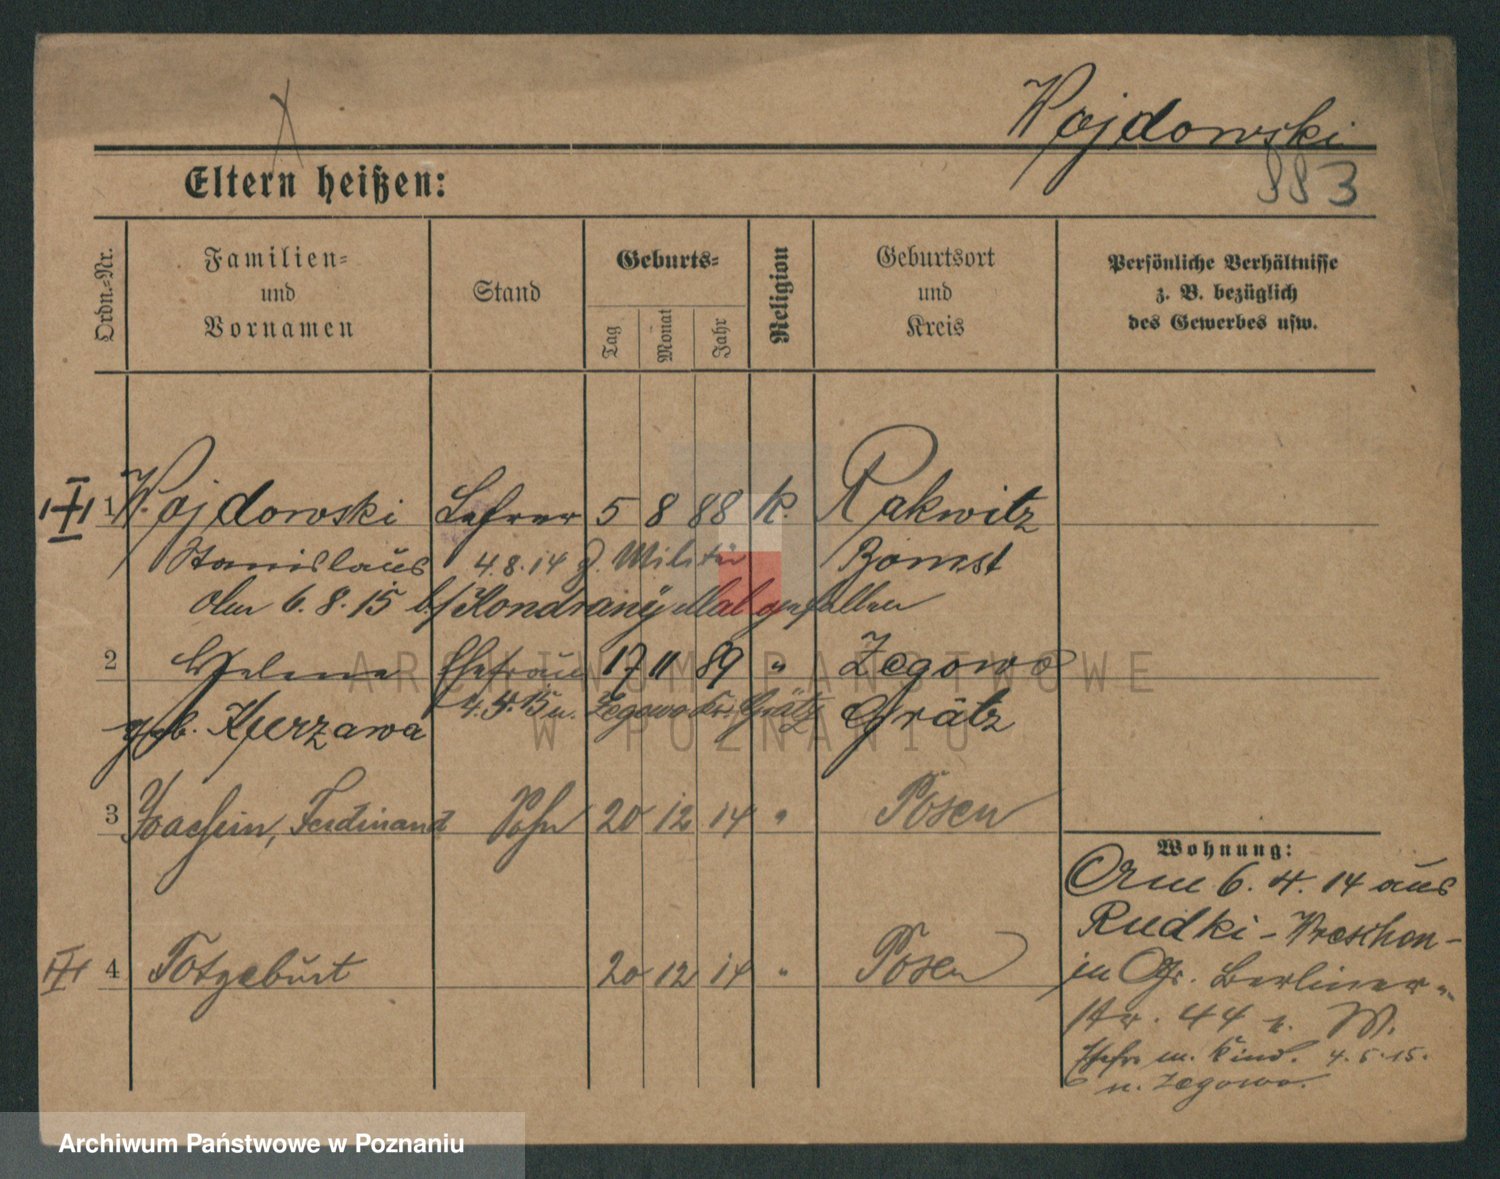 Wojdowski
883
Eltern heißen:
Ordn.-Nr.
Familien-
und
Vornamen
Stand
Geburts-
Tag
Monat
Jahr
Religion
Geburtsort
und
Kreis
Persönliche Verhältnisse
z. B. bezüglich
des Gewerbes usw.
1 Wojdowski Lehrer 5 8 88 k. Rakwitz
Stanislaus 4.8.14 z. Militär Bomst
Am 6.8.15 b/ gefallen
2 Helene Ehefrau 17 11 89 " Zegowo
geb. Kurzawa 4.5.15 n. Zegowo Kr. Grätz Grätz
3 Joachim, Ferdinand Sohn 20 12 14 " Posen
4 Totgeburt 20 12 14 " Posen
Wohnung:
Am 6.4.14 aus
Rudki-
in Berliner-
str. 44 b. W.
Ehefr. m. Kind. 4.5.15.
n. Zegowo.
ARCHIWUM PAŃSTWOWE
W POZNANIU
Archiwum Państwowe w Poznaniu